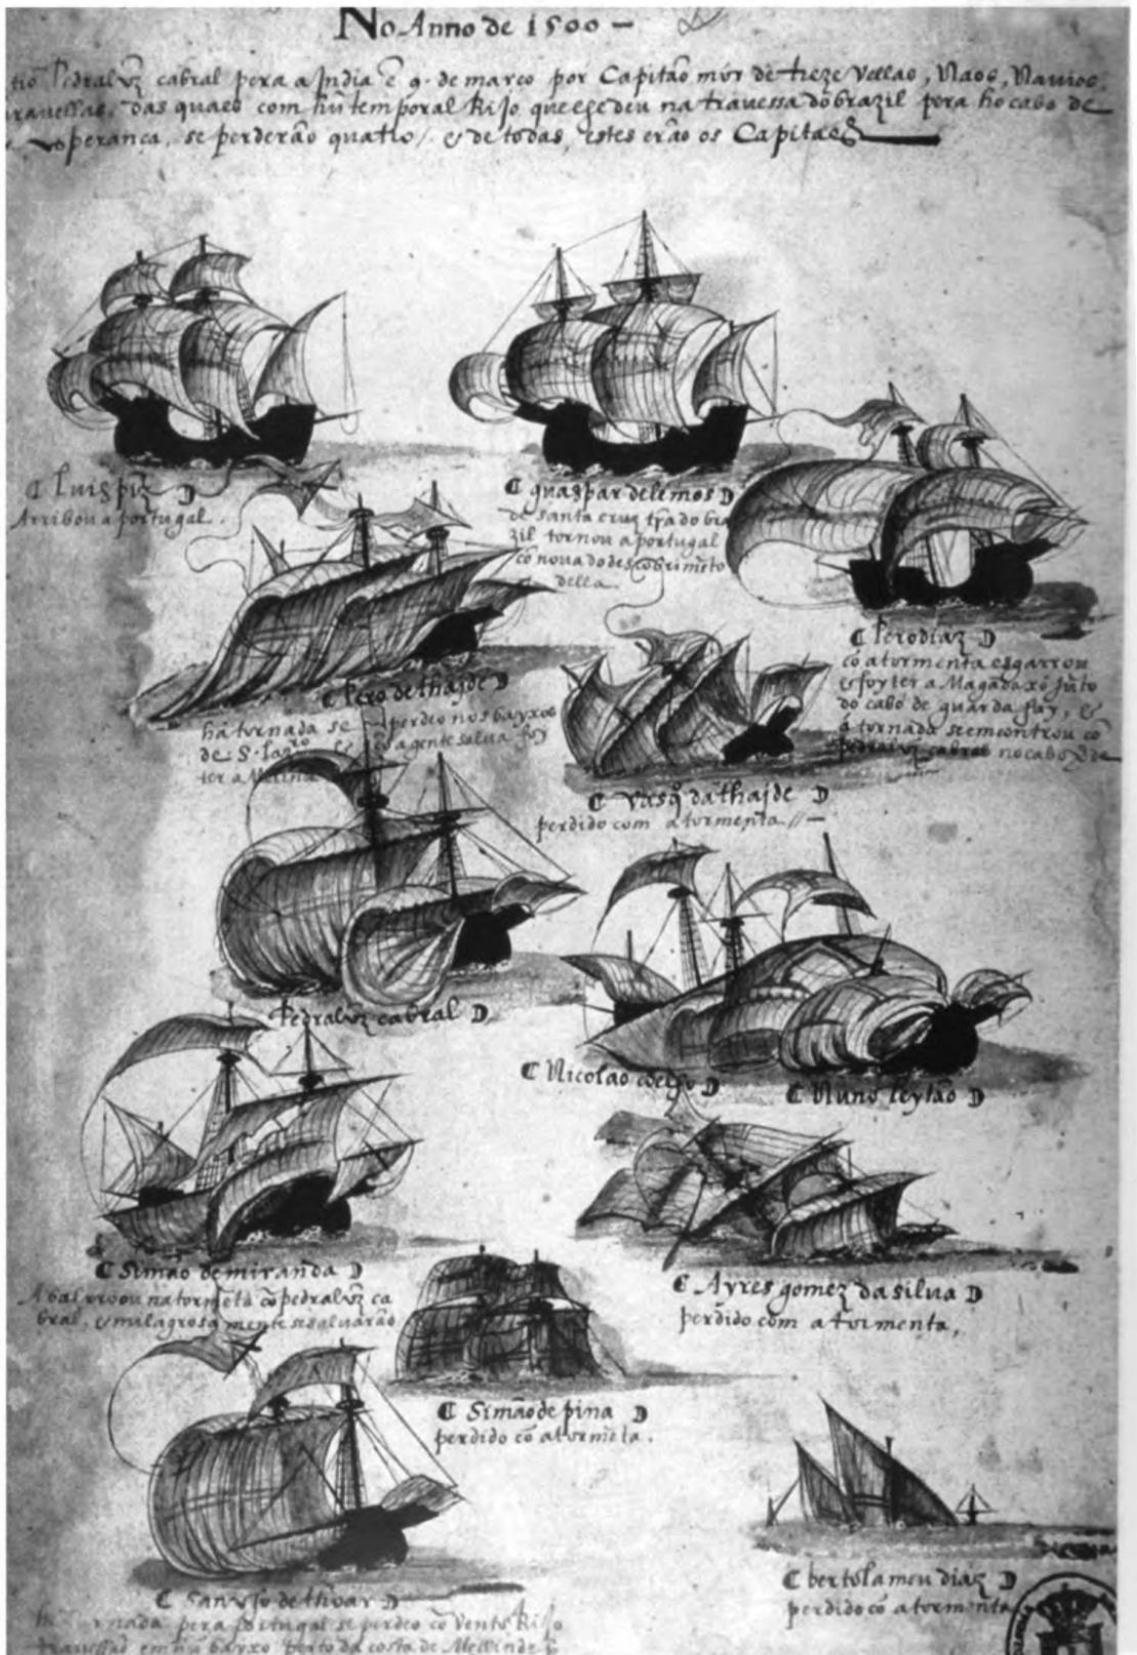 No Anno de 1500 —
Pedralvz cabral pera a India ẽ 9. de março por Capitão mór de treze Vellao, Naos, Navios,
das quaes com hũ temporal Rijo que ese deu na travessa do brazil pera ho cabo de
perança, se perderão quatro / e de todas, estes erão os Capitães
luis piz
Arribou a portugal.
guaspar delemos
de santa cruz tr̃a do bra
zil tornou a portugal
cõ nova do descobrimẽto
della
Pero diaz
cõ a tormenta esgarrou
e foy ter a Magadaxó Jũto
do cabo de guarda fuy, e
á tornada se emcontrou cõ
pedralvz cabral no cabo
Pero de thajde
há tornada se perdeo nos bayxos
de S. cõ a gente salva foy
ter a
Vasq̃ dathajde
perdido com a tormenta //—
Pedralvz cabral
Nicolao coelho
Nuno leytão
Simão de miranda
na tormẽta cõ pedralvz ca
bral, e milagrosamente se salvarão
Ayres gomez da silva
perdido com a tormenta,
Simão de pina
perdido cõ a tormẽta.
bertolameu diaz
perdido cõ a tormenta
de thoar
pera portugal se perdeo cõ vento Rijo
em hũ bayxo perto da costa de Melinde